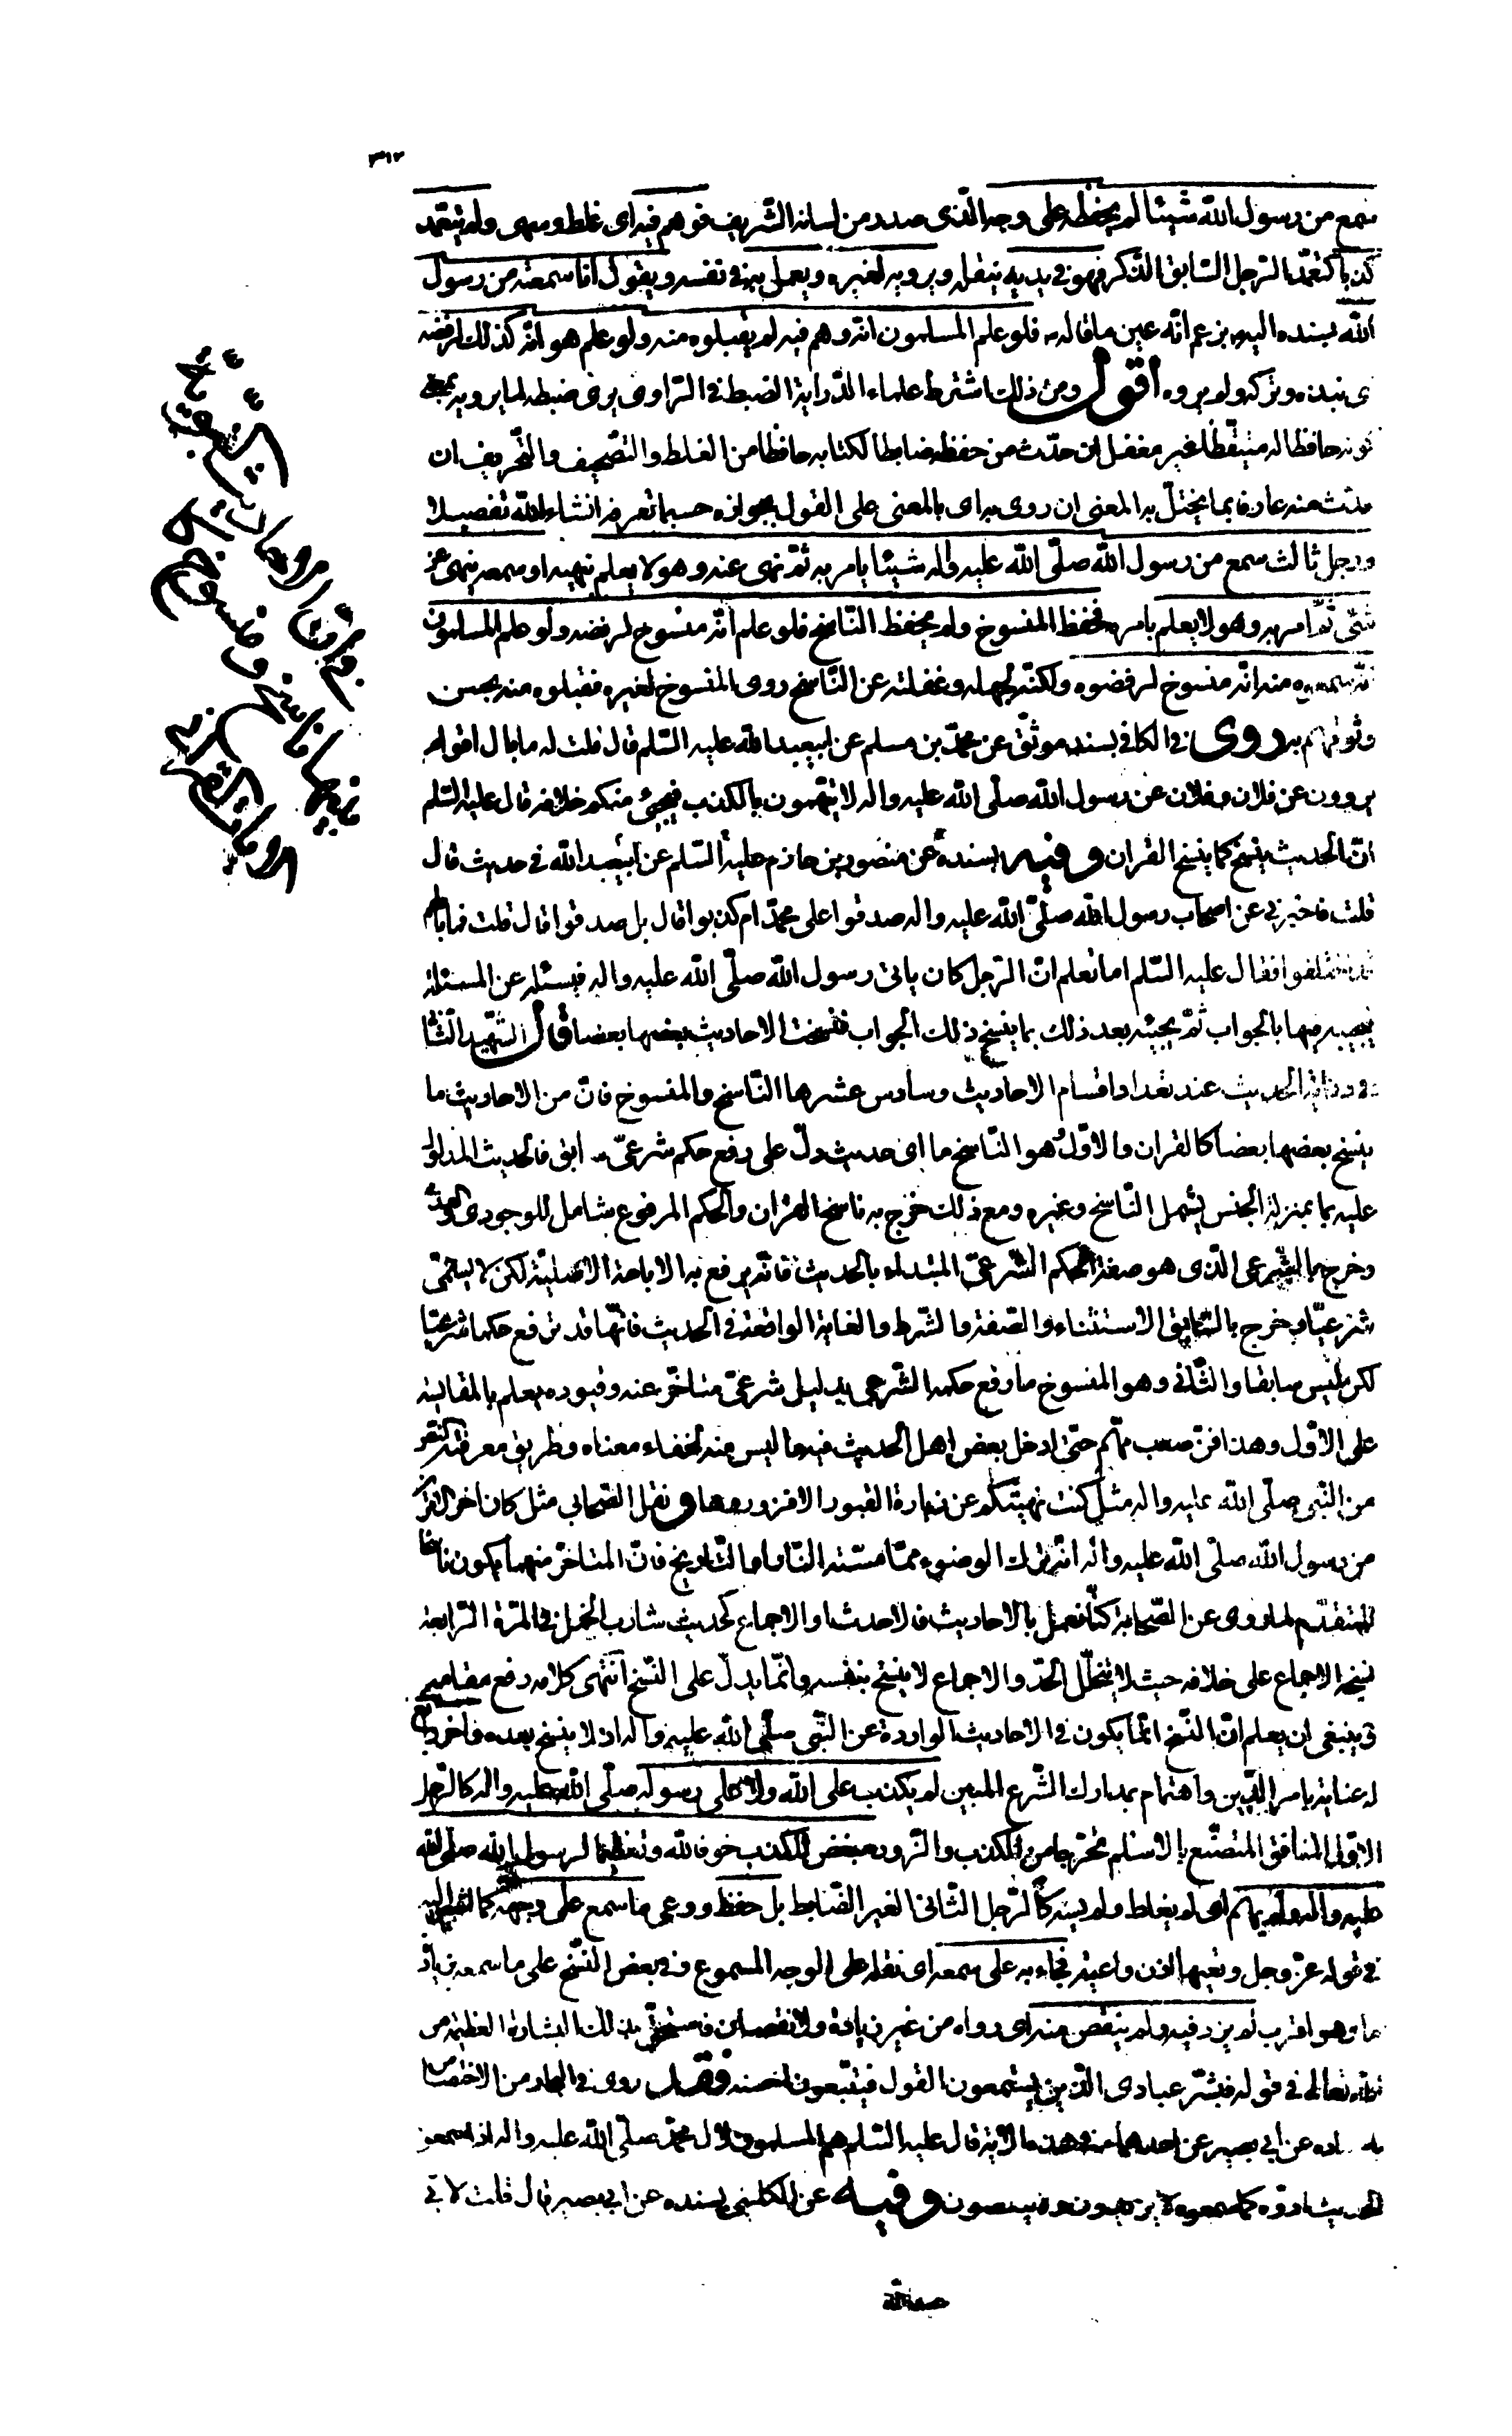 ٣١٢
سمع من رسول اللّه شيئا لم يحفظه على وجه الّذى صدر من لسانه الشّريف فوهم فيه اى غلط وسهى ولم يتعمّد
كذبا كتعمّد الرّجل السّابق الذّكر فهو فى يديه ينقله ويرويه لغيره ويعمل به فى نفسه ويقول انا سمعته من رسول
اللّه يسنده اليه بزعم انّه عين ما قاله فلو علم المسلمون انّه وهم فيه لم يقبلوه منه ولو علم هو انّه كذلك لرفضه
اى نبذه وتركه ولم يروه اقول ومن ذلك اشترط علماء الدّراية الضبط فى الرّاوى يرى ضبطه لما يرويه بمعنى
كونه حافظا له متيقّظا غير مغفل ان حدّث من حفظه ضابطا لكتابه حافظا من الغلط والتّصحيف والتّحريف ان
حدّث منه عارفا بما يختلّ به المعنى ان روى به اى بالمعنى على القول بجوازه حسبما تعرفه انشاء اللّه تفصيلا
ورجل ثالث سمع من رسول اللّه صلّى اللّه عليه واله شيئا يامر به ثمّ نهى عنه وهو لا يعلم نهيه او سمعه ينهى عن
شئى ثمّ امر به وهو لا يعلم بامره فحفظ المنسوخ ولم يحفظ النّاسخ فلو علم انّه منسوخ لرفضه ولو علم المسلمون
اذ سمعوه منه انّه منسوخ لرفضوه ولكنّه لجهله وغفلته عن النّاسخ روى المنسوخ لغيره فقبلوه منه بحسن
وثوقهم به روى فى الكافى بسند موثّق عن محمّد بن مسلم عن ابيعبد اللّه عليه السّلم قال قلت له ما بال اقوام
يروون عن فلان وفلان عن رسول اللّه صلّى اللّه عليه واله لا يتّهمون بالكذب فيجئ منكم خلافه قال عليه السّلم
انّ الحديث ينسخ كما ينسخ القران وفيه بسنده عن منصور بن حازم عليه السّلم عن ابيعبد اللّه فى حديث قال
قلت فاخبرنى عن اصحاب رسول اللّه صلّى اللّه عليه واله صدقوا على محمّد ام كذبوا قال بل صدقوا قال قلت فما بالهم
اختلفوا فقال عليه السّلم اما تعلم انّ الرّجل كان ياتى رسول اللّه صلّى اللّه عليه واله فيسئله عن المسئلة
فيجيبه فيها بالجواب ثمّ يجيئه بعد ذلك بما ينسخ ذلك الجواب فنسخت الاحاديث بعضها بعضا قال الشّهيد الثّانى
فى دراية الحديث عند تعداد اقسام الاحاديث وسادس عشرها النّاسخ والمنسوخ فانّ من الاحاديث ما
ينسخ بعضها بعضا كالقران والاوّل وهو النّاسخ ما اى حديث دلّ على رفع حكم شرعىّ سابق فالحديث المدلول
عليه بما بمنزلة الجنس يشمل النّاسخ وغيره ومع ذلك خرج به ناسخ القران والحكم المرفوع شامل للوجودى والعدمى
وخرج بالشّرعى الّذى هو صفة الحكم الشّرعىّ المبتدء بالحديث فانّه يرفع به الاباحة الاصليّة لكن لا يسمّى
شرعيّا وخرج بالسّابق الاستثناء والصّفة والشّرط والغاية الواقعة فى الحديث فانّها قد ترفع حكما شرعيّا
لكن ليس سابقا والثّانى وهو المنسوخ ما رفع حكمه الشّرعى بدليل شرعىّ متاخّر عنه وقيوده يعلم بالمقايسة
على الاوّل وهذا فنّ صعب مهّم حتّى ادخل بعض اهل الحديث فيه ما ليس منه لخفاء معناه وطريق معرفته النّصّ
من النّبى صلّى اللّه عليه واله مثل كنت نهيتكم عن زيارة القبور الا فزوروها و نقل الصّحابى مثل كان اخر الامرين
من رسول اللّه صلّى اللّه عليه واله انّه ترك الوضوء ممّا مسّته النّار او التّاريخ فانّ المتاخّر منهما يكون ناسخا
للمتقدّم لما روى عن الصّحابة كنّا نعمل بالاحاديث فالاحدث او الاجماع كحديث شارب الخمر فى المرّة الرّابعة
نسخه الاجماع على خلافه حيث لا يتخلّل الحدّ والاجماع لا ينسخ بنفسه وانّما يدلّ على النّسخ انتهى كلامه رفع مقامه
وينبغى ان يعلم انّ النّسخ انّما يكون فى الاحاديث الواردة عن النّبى صلّى اللّه عليه واله اذ لا ينسخ بعده واخر رابع
له عناية بامر الدّين واهتمام بمدارك الشّرع المبين لم يكذب على اللّه ولا على رسوله صلّى اللّه عليه واله كالرّجل
الاوّل المنافق المتصنّع بالاسلام تحرّجا من الكذب والزّور مبغض للكذب خوفا للّه وتعظيما لرسول اللّه صلّى اللّه
عليه واله ولم يهم اى لم يغلط ولم يسه كالرّجل الثّانى الغير الضّابط بل حفظ ووعى ما سمع على وجهه
فى قوله عزّ وجل وتعيها اذن واعية فجاء به على سمعه اى نقله على الوجه المسموع وفى بعض النّسخ على ما سمعه
وهو اقرب لم يزد فيه ولم ينقص منه اى رواه من غير زيادة ولا نقصان فاستحقّ بذلك البشارة العظيمة من
اللّه تعالى فى قوله فبشّر عبادى الّذين يستمعون القول فيتّبعون احسنه فقد روى فى البحار من الاختصاص
عن ابى بصير عن احدهما فى هذه الاية قال عليه السّلم هم المسلمون لال محمّد صلّى اللّه عليه واله اذا سمعوا
الحديث ادّوه كما سمعوه لا يزيدون ولا ينقصون وفيه عن الكلينى بسنده عن ابى بصير قال قلت لابى